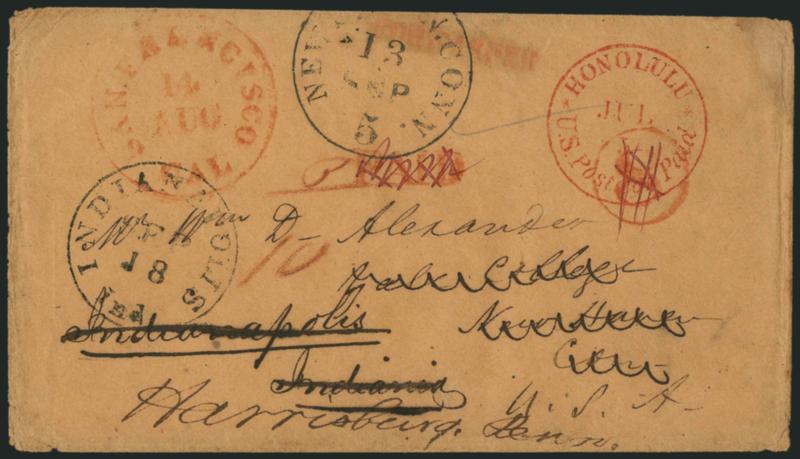 SAN FRANCISCO
14
AUG
CAL
NEW CONN
13
SEP
5
HONOLULU
JUL
U.S. Postage Paid
INDIANAPOLIS
18
Ind
Mr Wm D- Alexander
10
Yale College
Indianapolis
New Haven
Conn
Indiana
U. S. A-
Harrisburg, Penn.